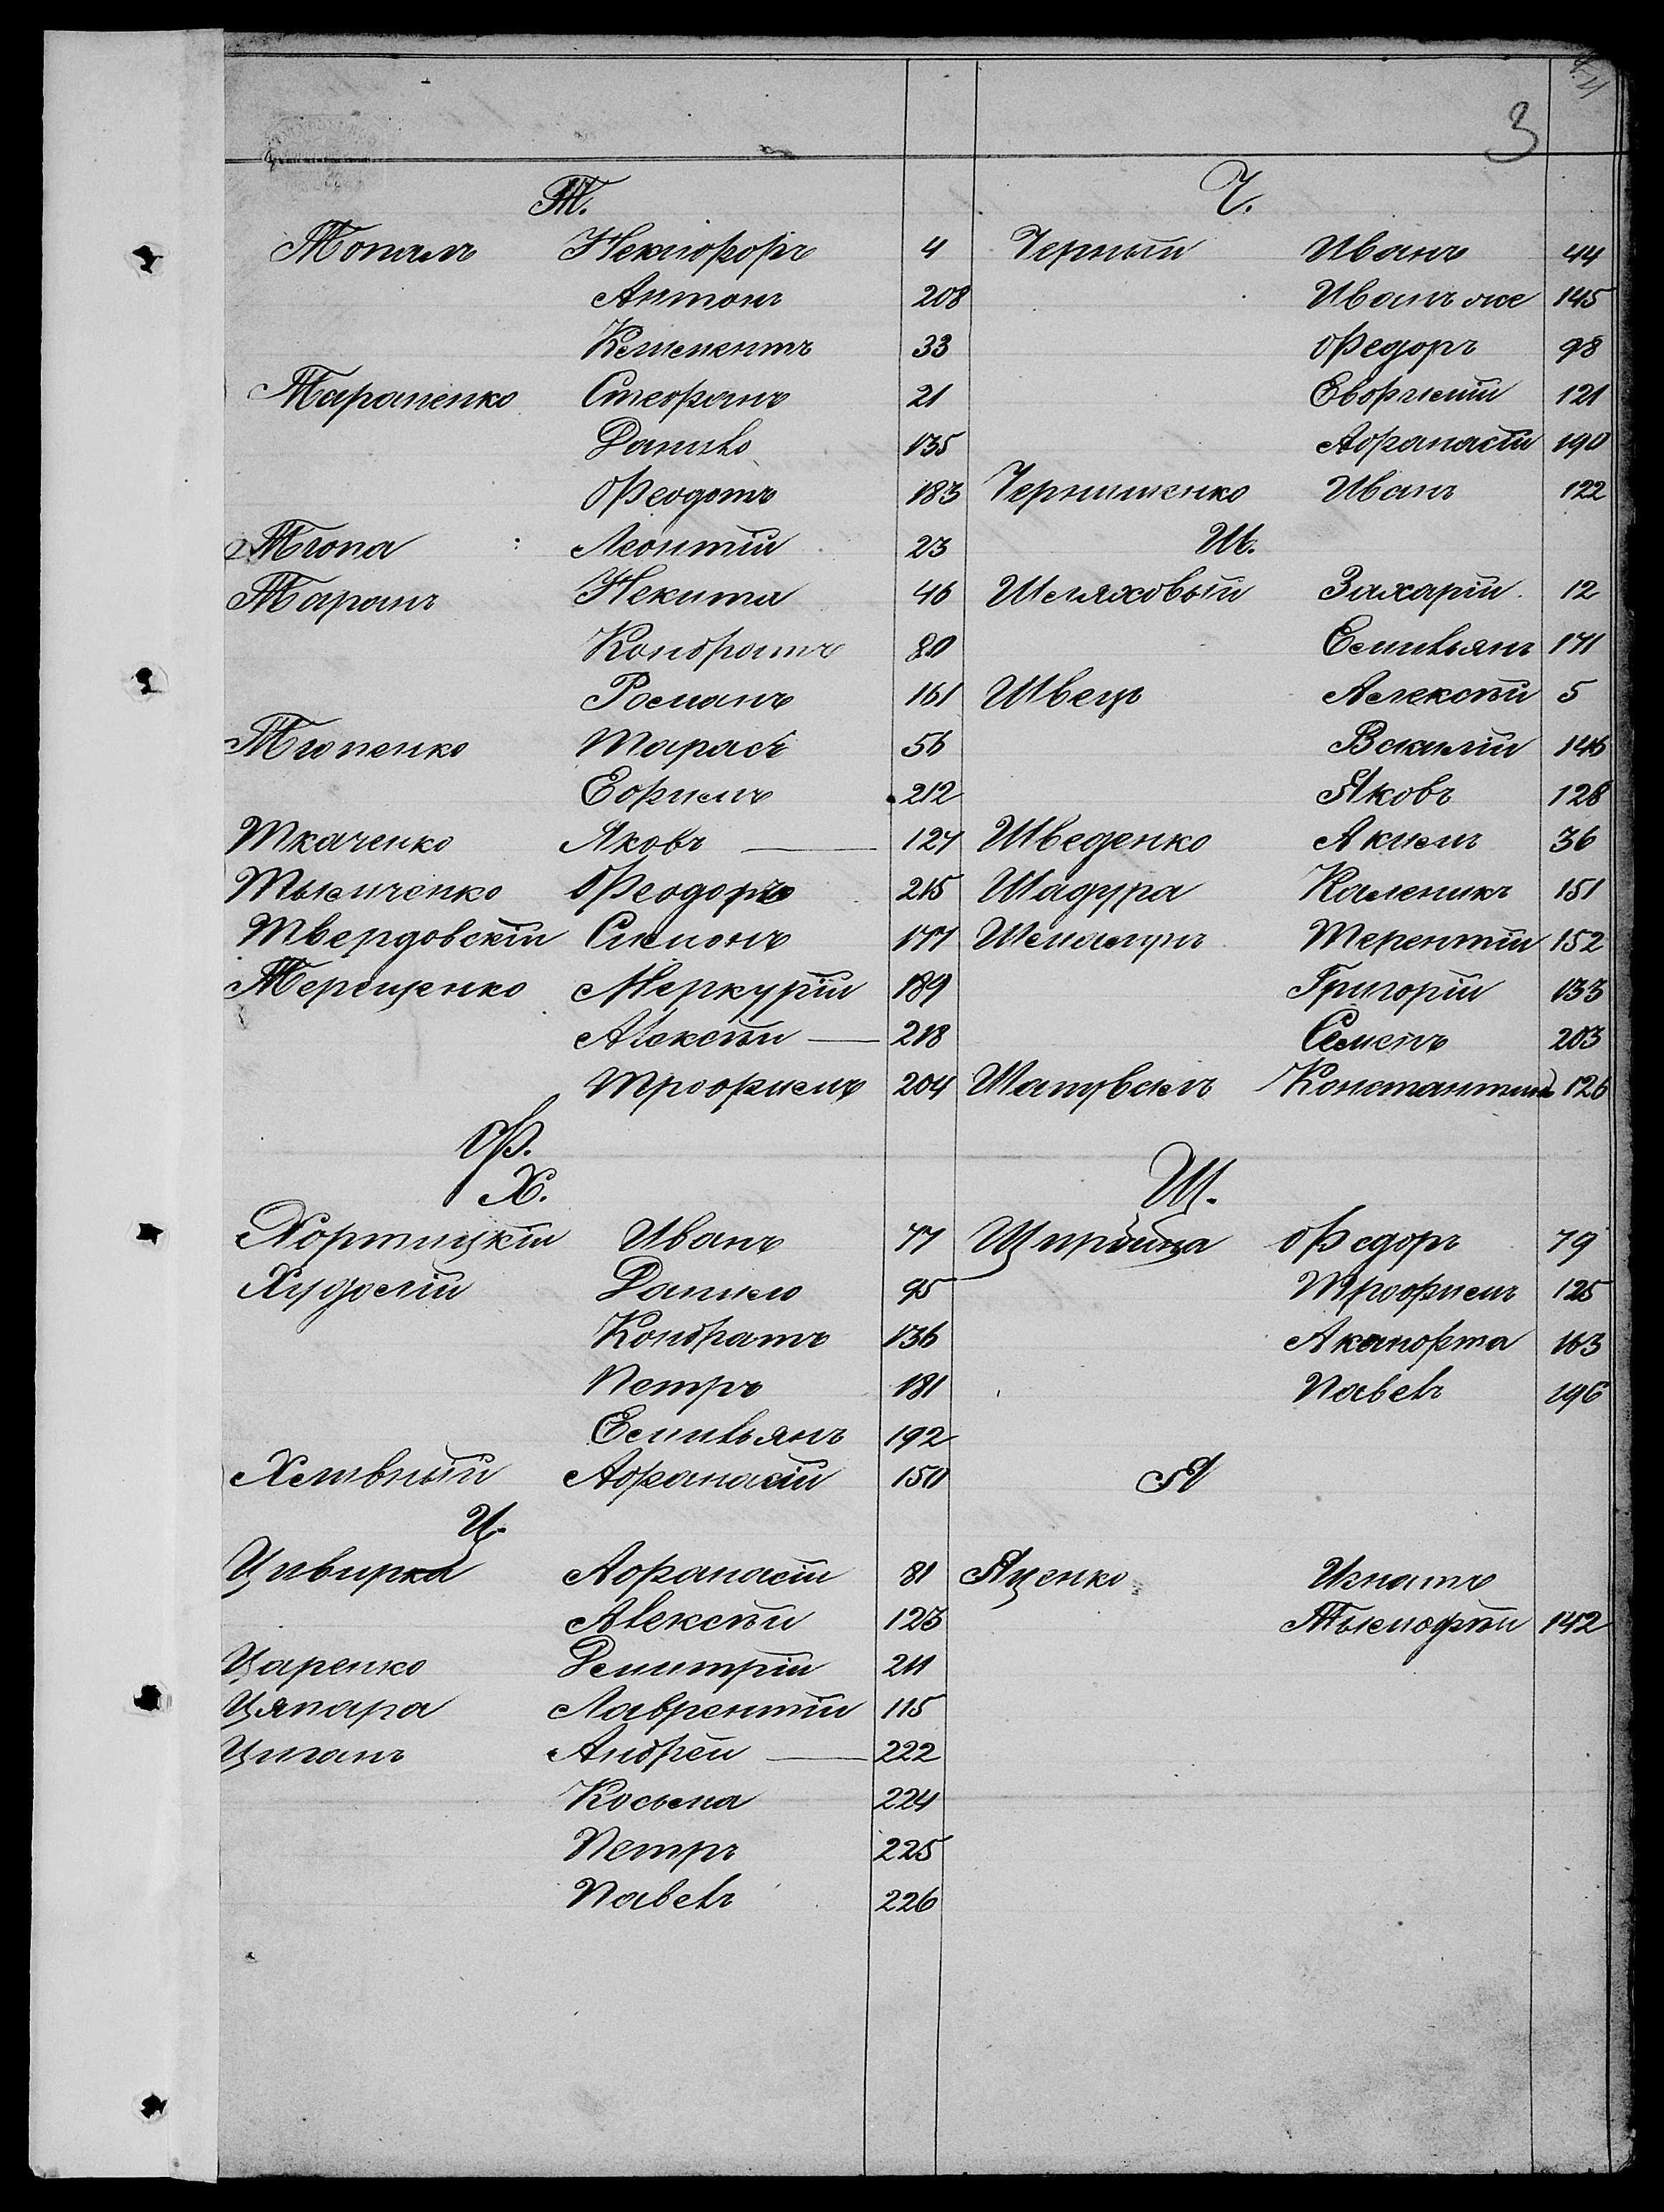 3
Т.
Топалъ Некифоръ 4
Антонъ 208
Климентъ 33
Тараненко Стефанъ 21
Данило 135
Феодотъ 183
Тюпа Леонтій 23
Таранъ Некита 46
Кондратъ 80
Романъ 161
Тюпенко Тарасъ 56
Ефимъ 212
Ткаченко Яковъ 127
Тымченко Феодоръ 215
Твердовскій Симонъ 177
Терещенко Меркурій 189
Алексѣй 218
Трофимъ 204
Ф.
Х.
Хортицкій Иванъ 77
Худолій Данило 95
Кондратъ 136
Петръ 181
Емильянъ 192
Хливный Афанасій 150
Ц.
Цивирка Афанасій 81
Алексѣй 123
Царенко Демитрій 211
Цяпара Лаврентій 115
Циганъ Андрей 222
Косьма 224
Петръ 225
Павелъ 226
Ч.
Черный Иванъ 44
Иванъ же 145
Федоръ 98
Евфимій 121
Афанасій 190
Чернишенко Иванъ 122
Ш.
Шляховый Захарій 12
Емильянъ 171
Швецъ Алексѣй 5
Василій 146
Яковъ 128
Шведенко Акимъ 36
Шадура Каленикъ 151
Терентій 152
Григорій 133
Семенъ 203
Шаповалъ Константинъ 126
Щ.
Федоръ 79
Трофимъ 125
Акинфта 163
Павелъ 196
Я
Яценко Игнатъ
Тымофѣй 142